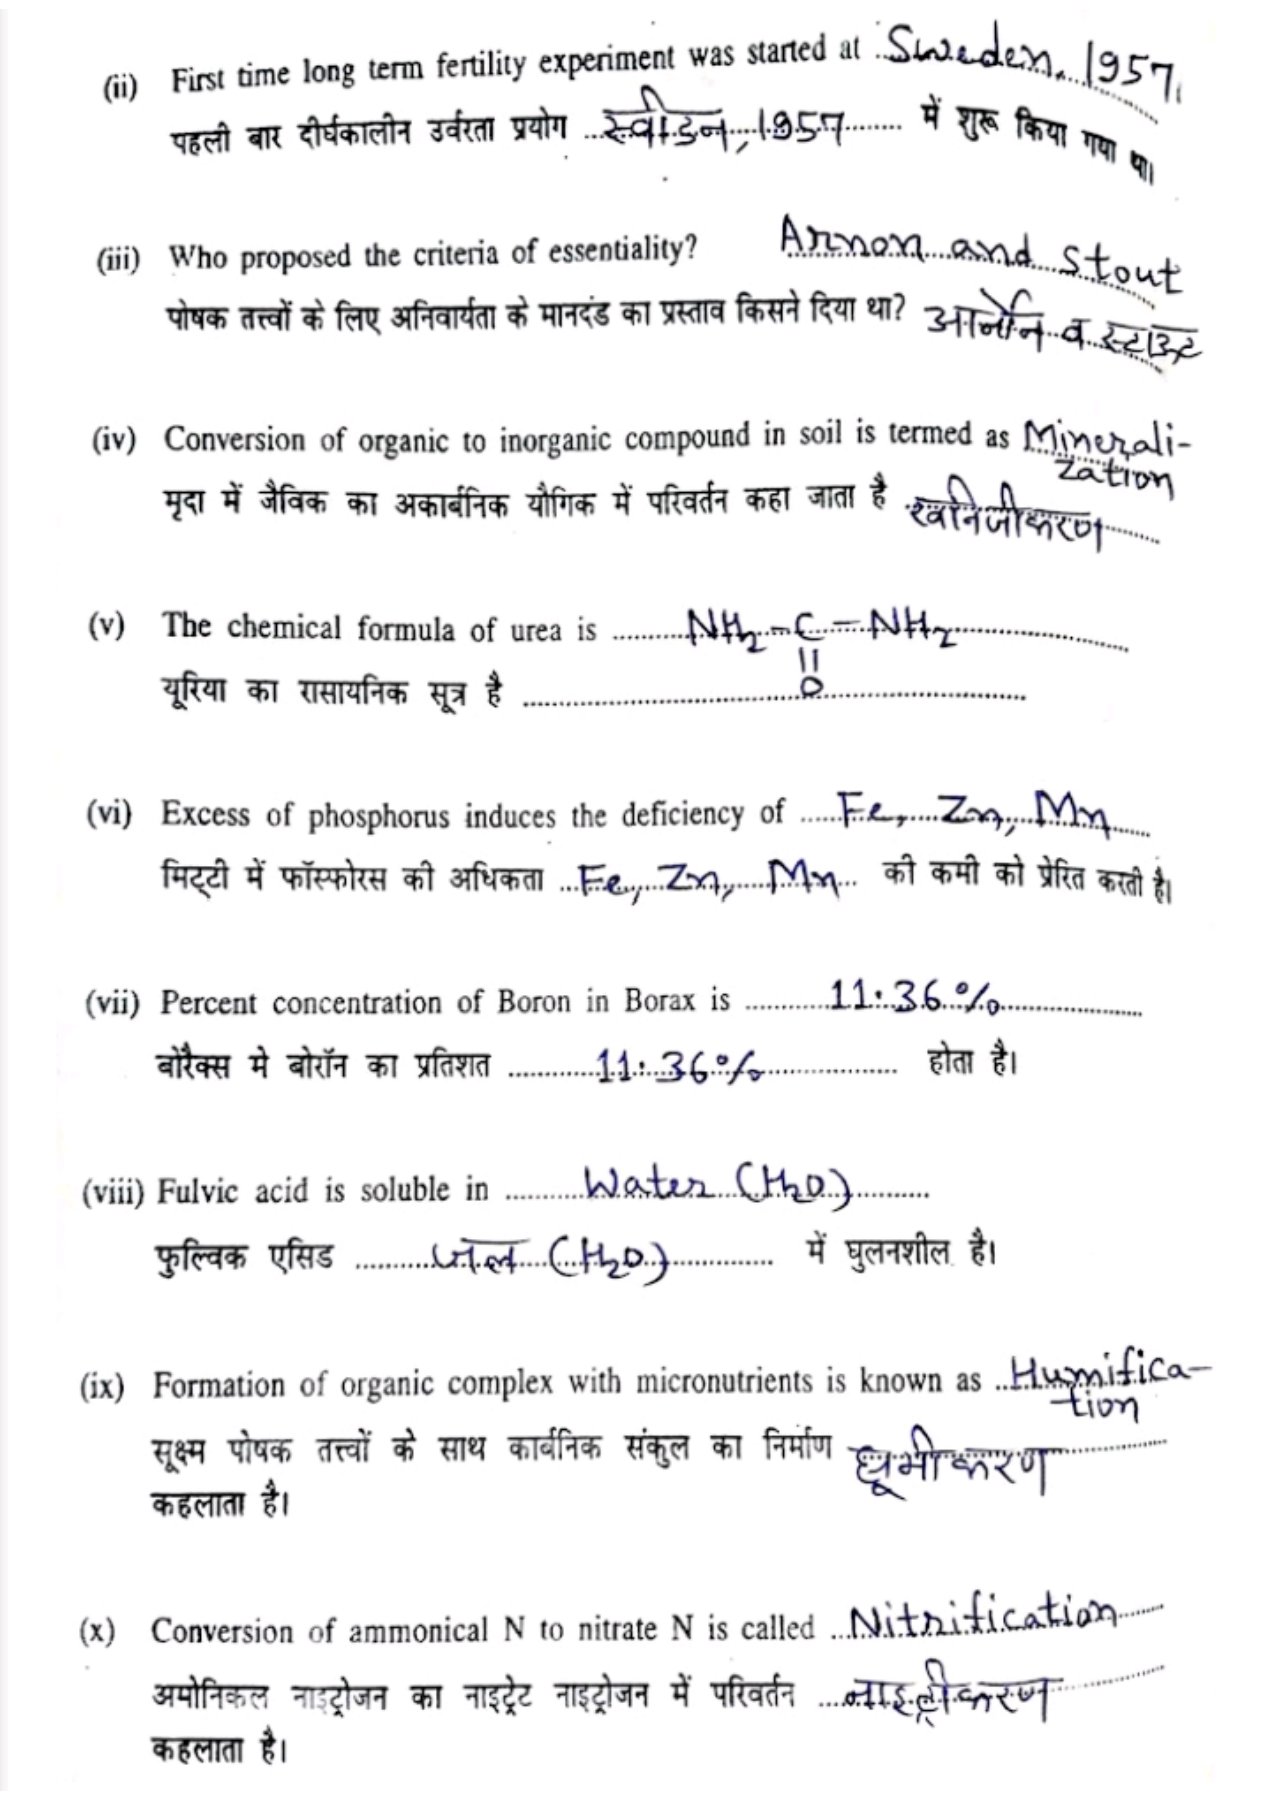 (ii) First time long term fertility experiment was started at Sweden, 1957.
पहली बार दीर्घकालीन उर्वरता प्रयोग स्वीडन, 1957 में शुरू किया गया था।
(iii) Who proposed the criteria of essentiality? Arnon and Stout
पोषक तत्त्वों के लिए अनिवार्यता के मानदंड का प्रस्ताव किसने दिया था? आर्नोन व स्टाऊट
(iv) Conversion of organic to inorganic compound in soil is termed as Minerali-
zation
मृदा में जैविक का अकार्बनिक यौगिक में परिवर्तन कहा जाता है खनिजीकरण
(v) The chemical formula of urea is NH2-C-NH2
||
यूरिया का रासायनिक सूत्र है O
(vi) Excess of phosphorus induces the deficiency of Fe, Zn, Mn
मिट्टी में फॉस्फोरस की अधिकता Fe, Zn, Mn की कमी को प्रेरित करती है।
(vii) Percent concentration of Boron in Borax is 11.36%
बोरैक्स मे बोरॉन का प्रतिशत 11.36% होता है।
(viii) Fulvic acid is soluble in Water (H2O)
फुल्विक एसिड जल (H2O) में घुलनशील है।
(ix) Formation of organic complex with micronutrients is known as Humifica-
tion
सूक्ष्म पोषक तत्त्वों के साथ कार्बनिक संकुल का निर्माण ध्रूमीकरण
कहलाता है।
(x) Conversion of ammonical N to nitrate N is called Nitrification
अमोनिकल नाइट्रोजन का नाइट्रेट नाइट्रोजन में परिवर्तन नाइट्रीकरण
कहलाता है।